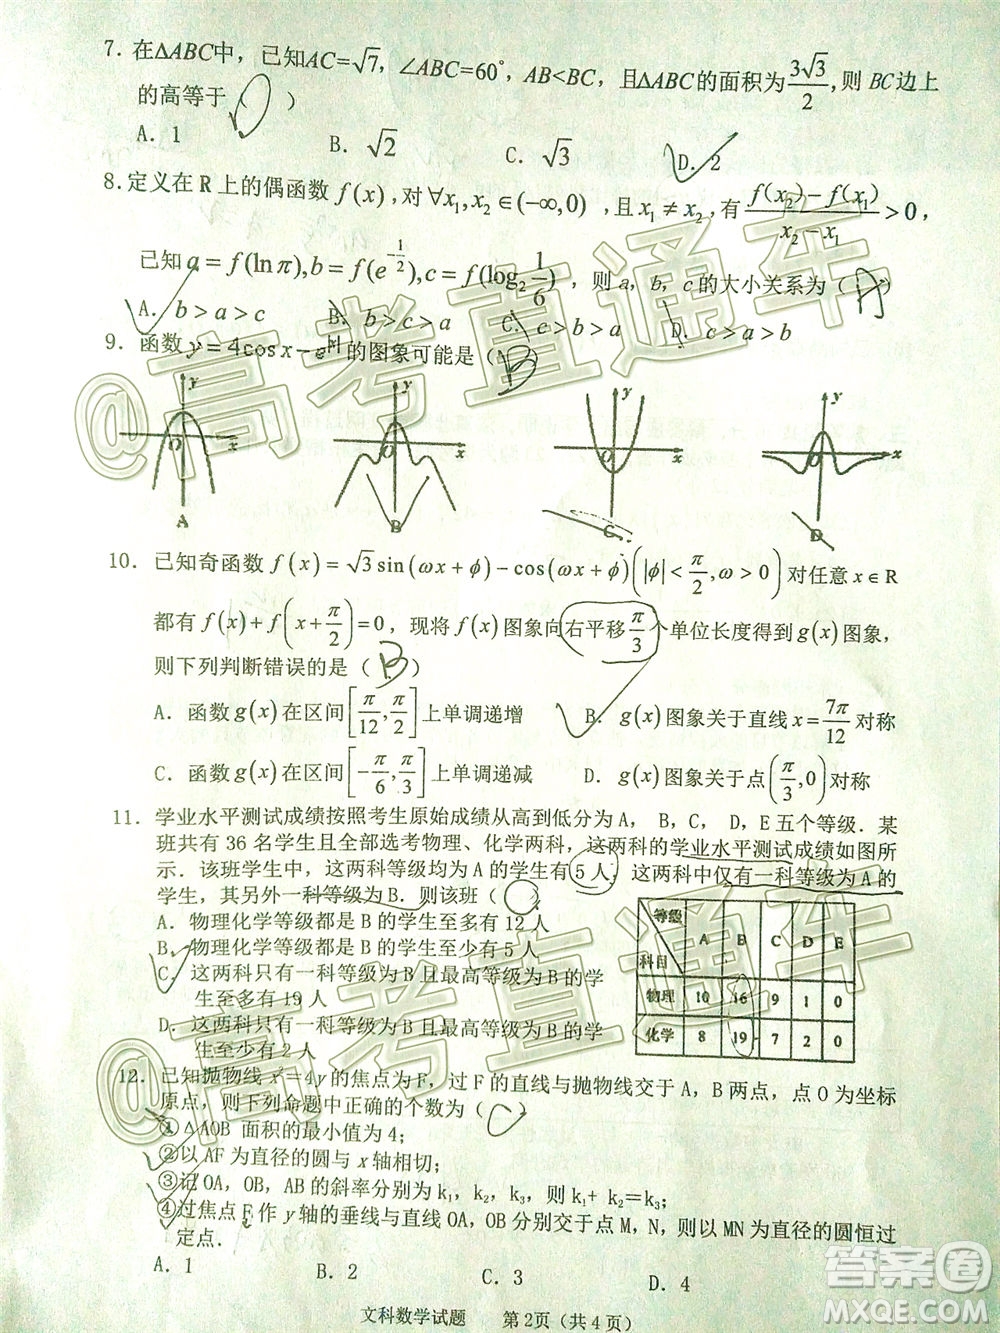 7. 在△ABC中，已知AC=√7, ∠ABC=60°, AB<BC, 且△ABC的面积为3√3/2, 则BC边上
的高等于（ ）
A. 1  B. √2  C. √3  D. 2
8. 定义在R上的偶函数f(x), 对∀x₁, x₂∈(-∞,0), 且x₁≠x₂, 有 (f(x₂)-f(x₁))/(x₂-x₁)>0,
已知a=f(lnπ), b=f(e^(-1/2)), c=f(log₂ 1/6), 则a, b, c的大小关系为（A）
A. b>a>c  B. b>c>a  C. c>b>a  D. c>a>b
9. 函数y=4cosx-e^|x|的图象可能是（B）
y y y y
O x O x O x O x
A B C D
10. 已知奇函数f(x)=√3sin(ωx+ϕ)-cos(ωx+ϕ)(|ϕ|<π/2, ω>0)对任意x∈R
都有f(x)+f(x+π/2)=0, 现将f(x)图象向右平移π/3个单位长度得到g(x)图象,
则下列判断错误的是（B）
A. 函数g(x)在区间[π/12, π/2]上单调递增  B. g(x)图象关于直线x=7π/12对称
C. 函数g(x)在区间[-π/6, π/3]上单调递减  D. g(x)图象关于点(π/3, 0)对称
11. 学业水平测试成绩按照考生原始成绩从高到低分为A, B, C, D, E五个等级. 某
班共有36名学生且全部选考物理、化学两科, 这两科的学业水平测试成绩如图所
示. 该班学生中, 这两科等级均为A的学生有5人, 这两科中仅有一科等级为A的
学生, 其另外一科等级为B. 则该班（ ）
A. 物理化学等级都是B的学生至多有12人
B. 物理化学等级都是B的学生至少有5人
C. 这两科只有一科等级为B且最高等级为B的学
生至多有19人
D. 这两科只有一科等级为B且最高等级为B的学
生至少有2人
等级 科目 A B C D E
物理 10 16 9 1 0
化学 8 19 7 2 0
12. 已知抛物线x²=4y的焦点为F, 过F的直线与抛物线交于A, B两点, 点O为坐标
原点, 则下列命题中正确的个数为（C）
①△AOB面积的最小值为4;
②以AF为直径的圆与x轴相切;
③记OA, OB, AB的斜率分别为k₁, k₂, k₃, 则k₁+k₂=k₃;
④过焦点F作y轴的垂线与直线OA, OB分别交于点M, N, 则以MN为直径的圆恒过
定点.
A. 1  B. 2  C. 3  D. 4
文科数学试题 第2页（共4页）
@高考直通车
@高考直通车
答案圈
MXQE.COM